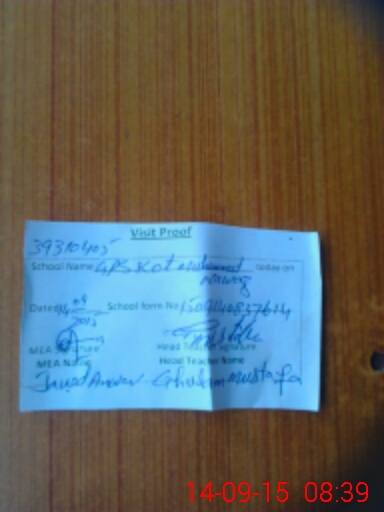 Visit Proof
39310405
School Name GPS Kot Muhammad today on
Nawaz
Dated 14-09 School form No
2015
MEA Signature Head Teacher Signature
MEA Name Head Teacher Name
Javed Anwar Ghulam Mustafa
14-09-15 08:39